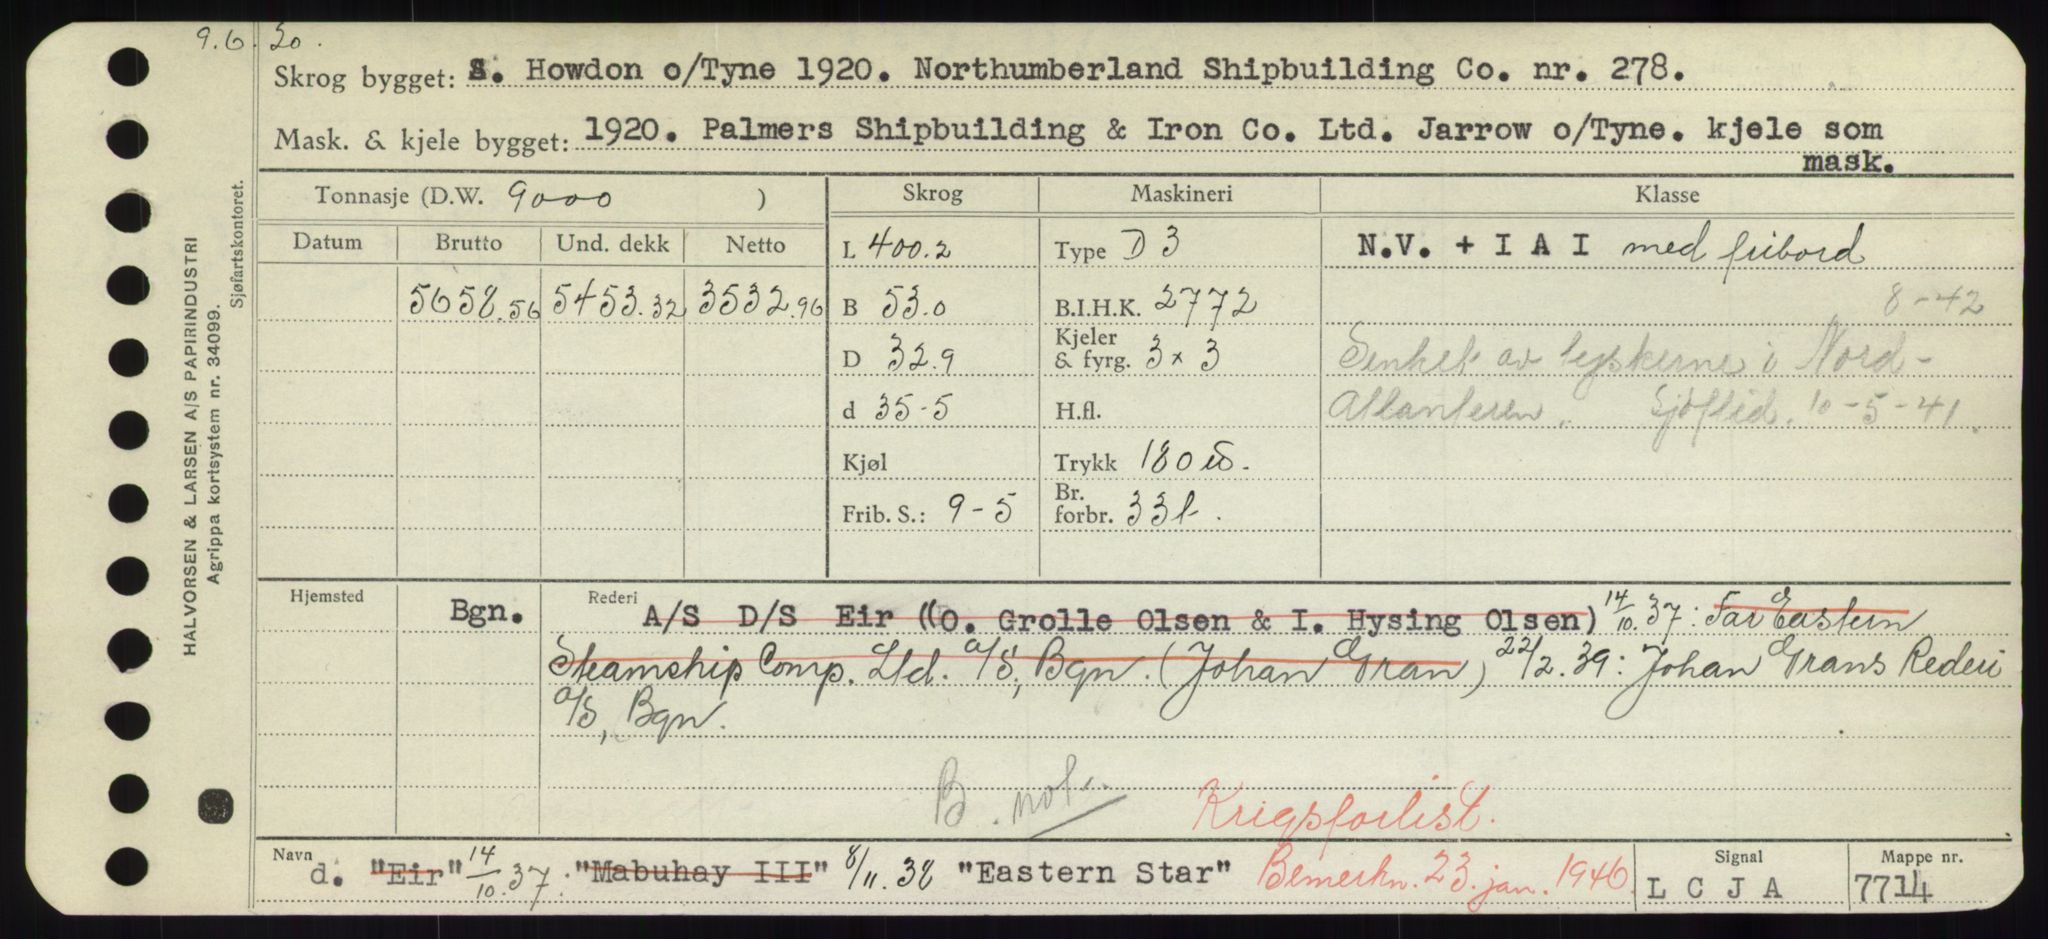 9.6.30.
Skrog bygget: S. Howdon o/Tyne 1920. Northumberland Shipbuilding Co. nr. 278.
Mask. & kjele bygget: 1920. Palmers Shipbuilding & Iron Co. Ltd. Jarrow o/Tyne. kjele som
mask.
Tonnasje (D.W. 9000 ) Skrog Maskineri Klasse
Datum Brutto Und. dekk Netto L 400.2 Type D 3 N.V. + I A I med fribord
5658.56 5453.32 3532.96 B 53.0 B.I.H.K. 2772 8-42
D 32.9 Kjeler & fyrg. 3 x 3 Senket av tyskerne i Nord-
d 35-5 H.fl. Atlanteren. Sjöftid. 10-5-41.
Kjøl Trykk 180
Frib. S.: 9-5 Br. forbr. 33t.
Hjemsted Bgn. Rederi A/S D/S Eir ((O. Grolle Olsen & I. Hysing Olsen) 14/10.37: Far Eastern
Steamship Comp. Ltd. A/S, Bgn. (Johan Gran) 22/2.39: Johan Grans Rederi
A/S, Bgn.
B. not.
Krigsforlist.
Navn d. "Eir" 14/10.37: "Mabuhay III" 8/11.38 "Eastern Star" Bemerkn. 23. jan. 1946. Signal L C J A Mappe nr. 7714
HALVORSEN & LARSEN A/S PAPIRINDUSTRI
Agrippa kortsystem nr. 34099.
Sjøfartskontoret.